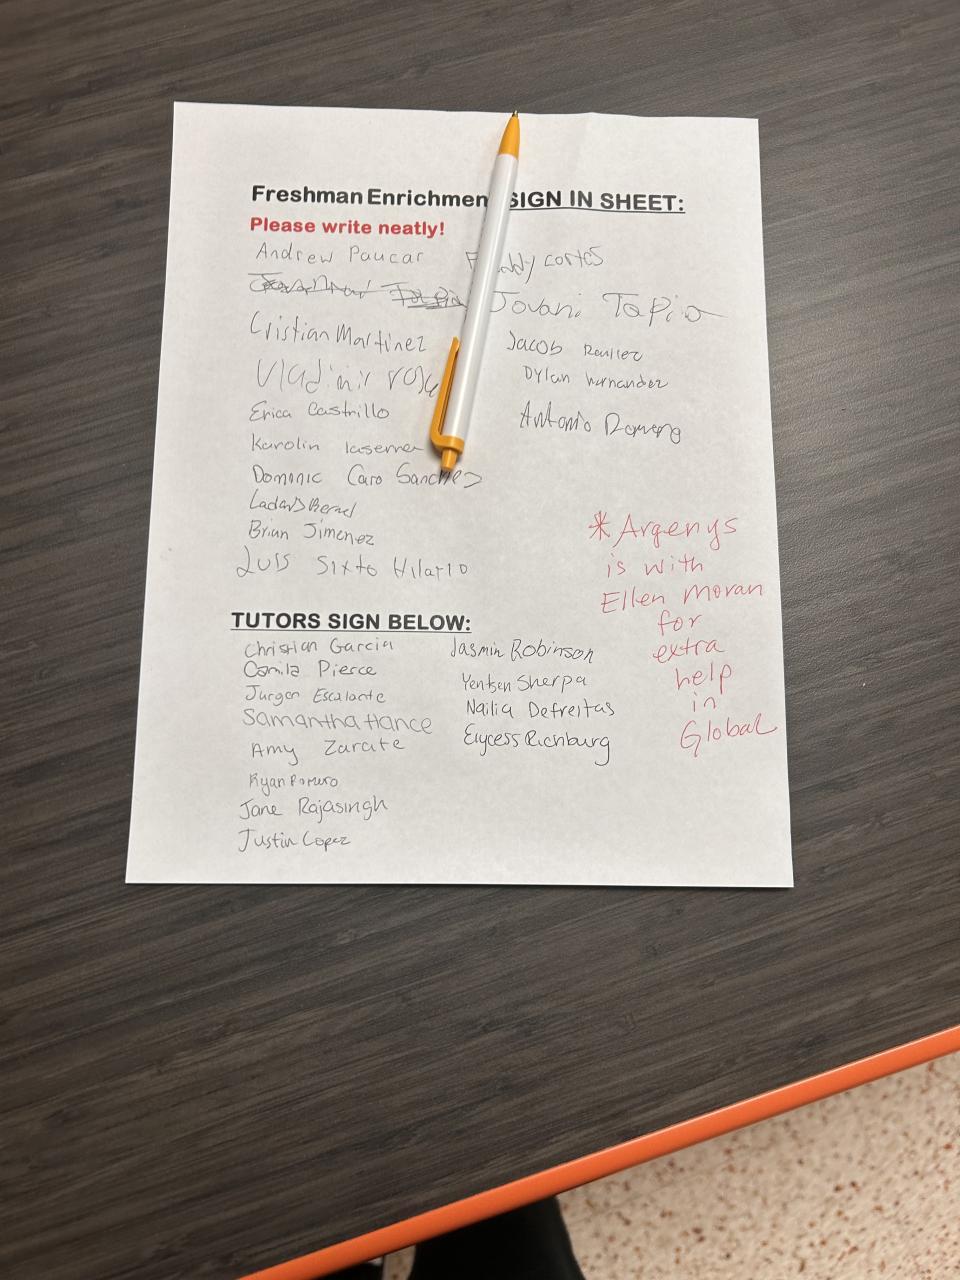 Freshman Enrichmen SIGN IN SHEET:
Please write neatly!
Andrew Paucar
Cristian Martinez
Vladimir
Erica Castrillo
Karolin
Dominic Caro Sanchez
Brian Jimenez
Luis Sixto Hilario
cortes
Jovani Tapia
Jacob
Dylan hernandez
Antonio Romero
*Argenys
is with
Ellen Moran
for
extra
help
in
Global
TUTORS SIGN BELOW:
Christian Garcia
Camila Pierce
Jurgen Escalante
Samantha Hance
Amy Zarate
Ryan Romero
Jane Rajasingh
Justin Lopez
Jasmin Robinson
Yentsen Sherpa
Nailia Defreitas
Richburg